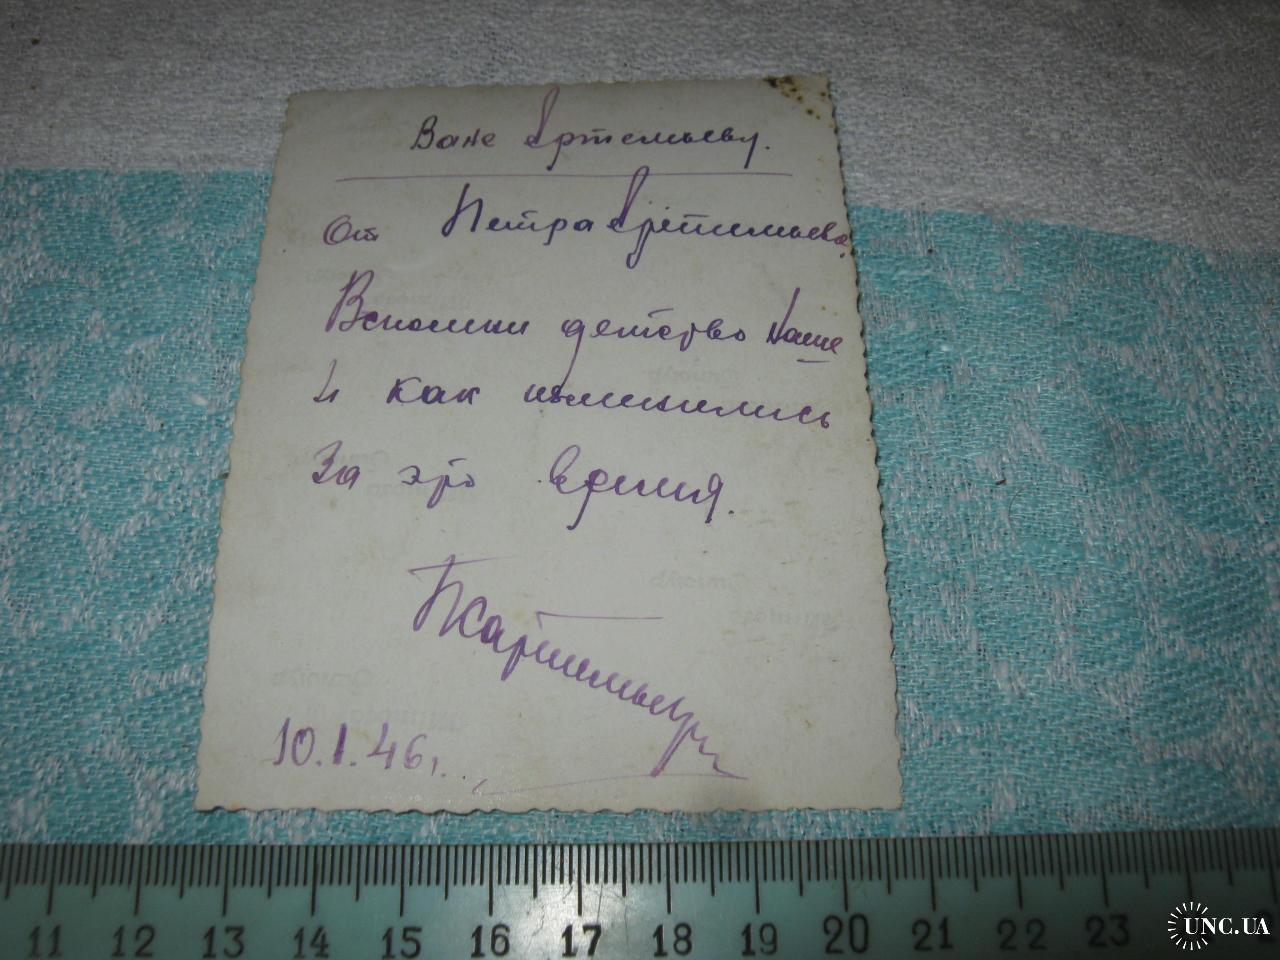 Ване Артемьеву.
От Петра Артемьева.
Вспомни детство наше
и как изменились
За это время.
10.1.46г.
11 12 13 14 15 16 17 18 19 20 21 22 23
UNC.UA